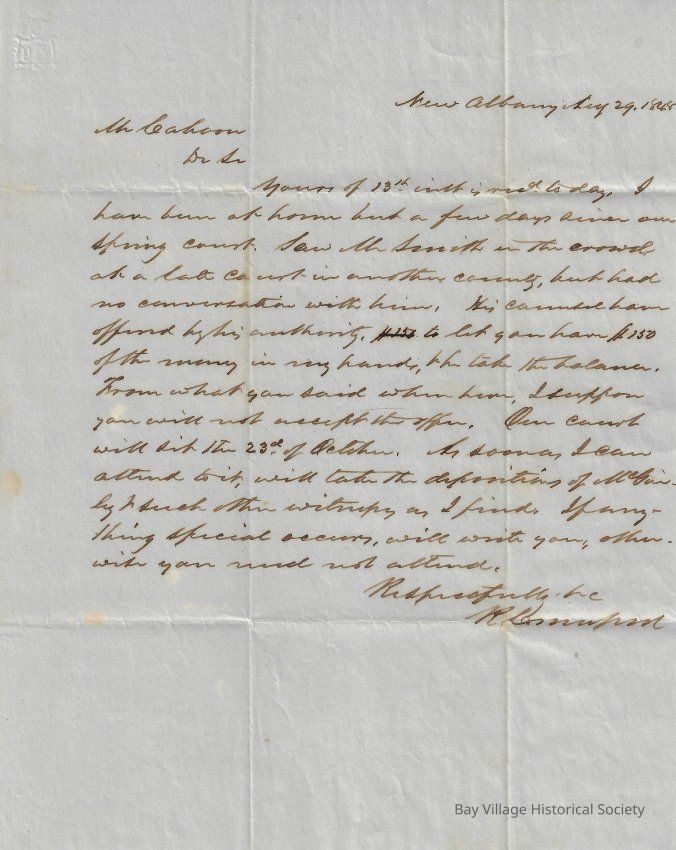 New Albany Aug 29, 1848
Mr Cahoon
Dr Sr
Yours of 13th inst is recd. to day. I
have been at home but a few days since our
Spring court. Saw Mr Smith in the crowd
at a late court in another county, but had
no conversation with him. His counsel have
offered by his authority, to let you have $150
of the money in my hands, & he take the balance.
From what you said when here, I suppose
you will not accept the offer. Our court
will sit the 23d. of October. As soon as I can
attend to it, will take the depositions of
& such other witnesses as I find. If any-
thing special occurs, will write you, other-
wise you need not attend.
Respectfully &c
R.
Bay Village Historical Society